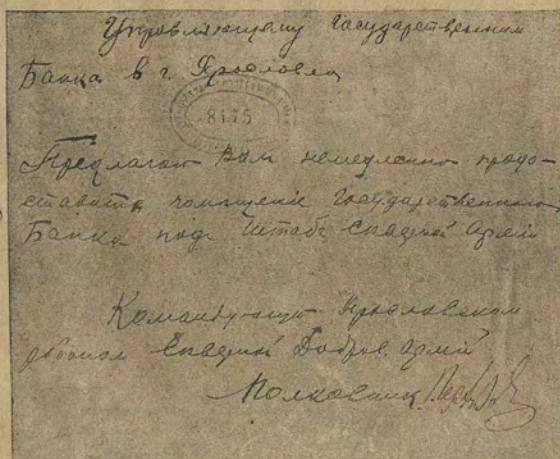 Управляющему Государственным
Банка в г. Ярославля
8175
Предлагаю Вам немедленно предо-
ставить помещение Государственного
Банка под Штаб Северной Армии
Командующий Ярославским
районом Северной Добров. армии
Полковник